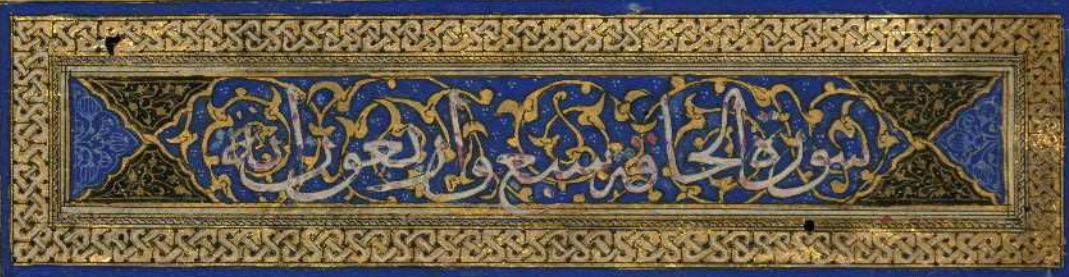 سورة الحاقة سبع واربعون اية